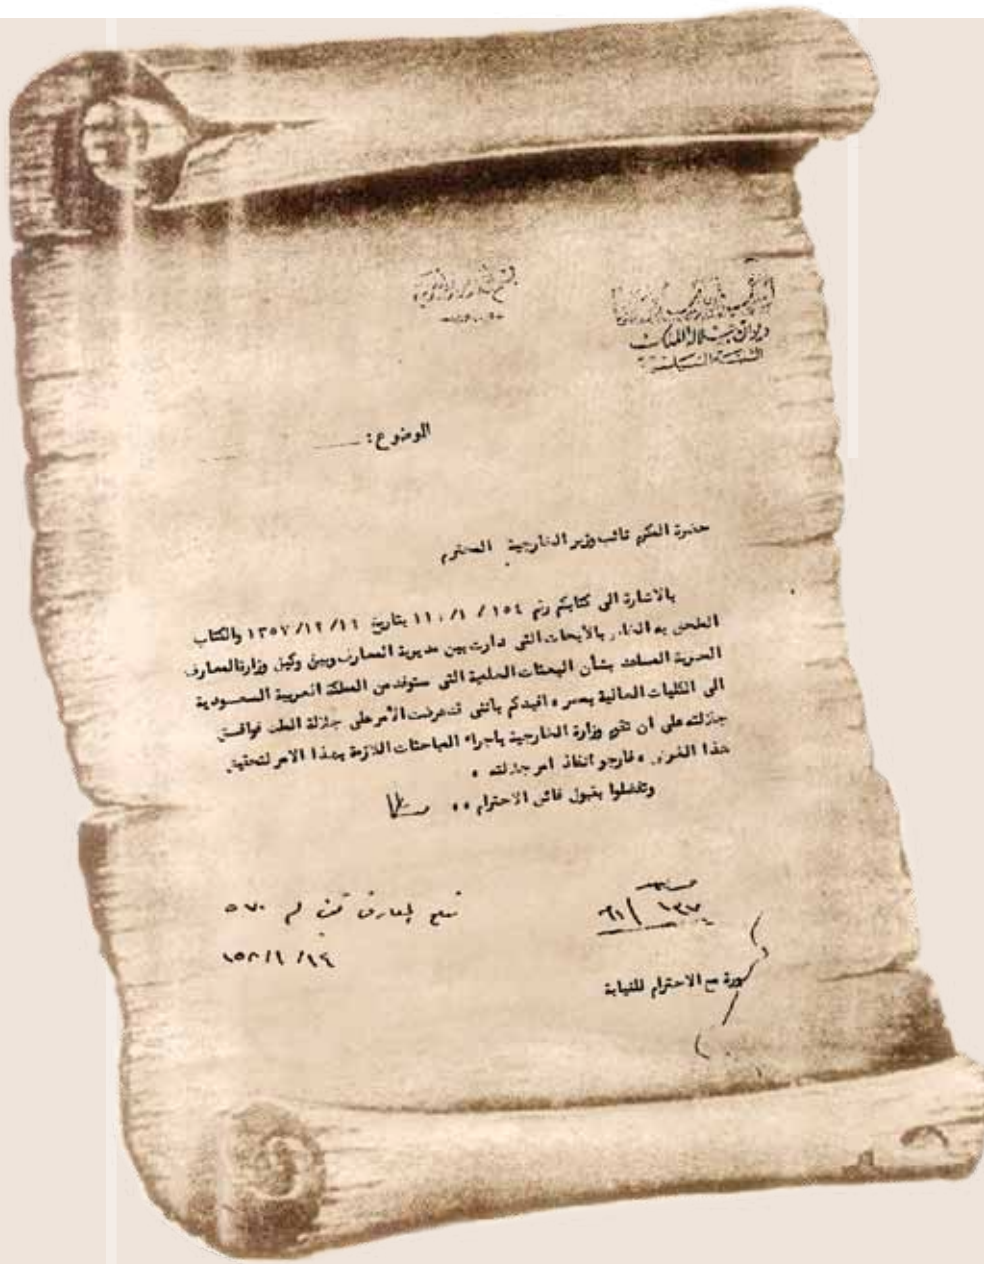 بسم الله الرحمن الرحيم
ديوان جلالة الملك
الشعبة السياسية
الموضوع :
حضرة المكرم نائب وزير الخارجية المحترم
بالاشارة الى كتابكم رقم ١٥٤ / ١ / ١١ بتاريخ ١٦ /١٢/ ١٣٥٧ والكتاب
الملحق به الخاص بالأبحاث التى دارت بين مديرية المعارف وبين وكيل وزارة المعارف
المصرية المساعد بشأن البعثات العلمية التى ستوفد من المملكة العربية السعودية
الى الكليات العالية بمصر ، افيدكم باننى قد عرضت الأمر على جلالة الملك فوافق
جلالته على ان تقوم وزارة الخارجية باجراء المباحثات اللازمة بهذا الامر لتحقيق
هذا الغرض ، فارجو انفاذ امر جلالته ،
وتفضلوا بقبول فائق الاحترام ،،
صورة مع الاحترام للنيابة